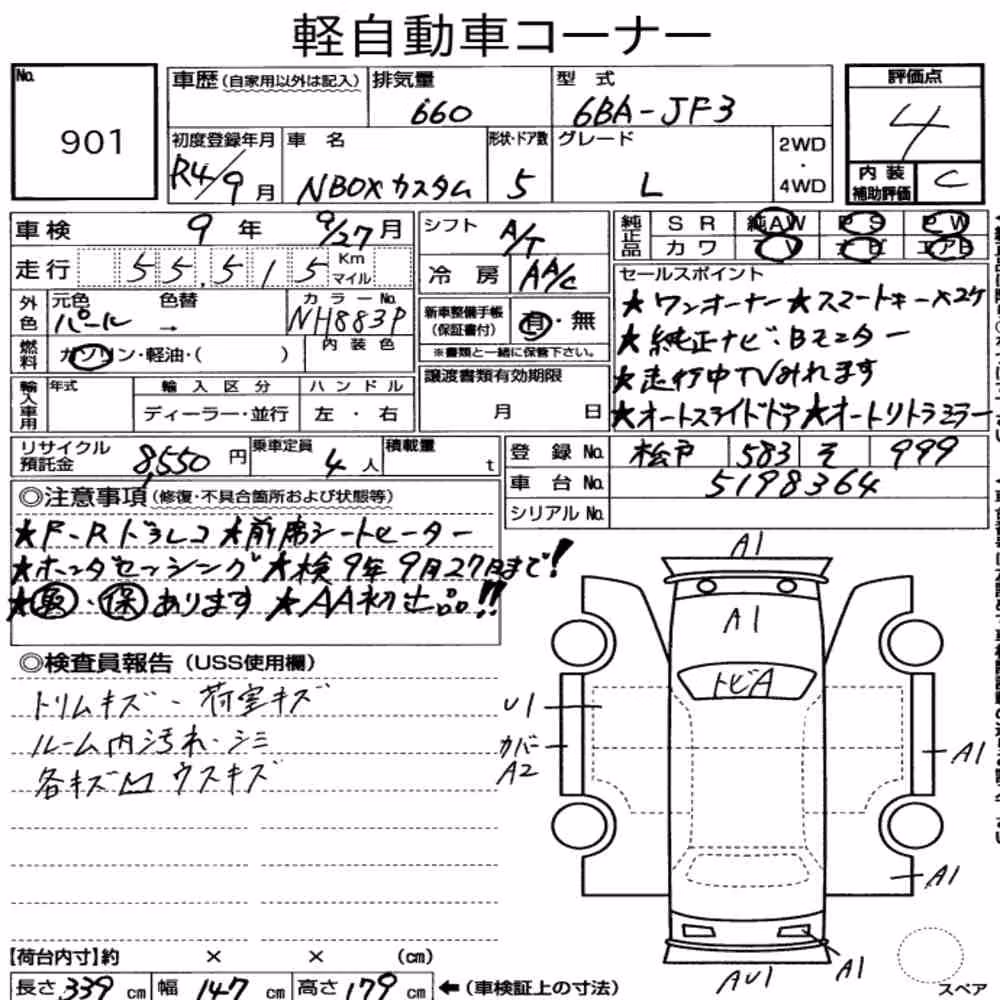 軽自動車コーナー
No. 901
車歴(自家用以外は記入) 排気量 660 型式 6BA-JF3 評価点 4
初度登録年月 R4/9月 車名 NBOXカスタム 形状・ドア数 5 グレード L 2WD・4WD 内装補助評価 C
車検 9年 9/27月 シフト A/T 純正品 SR 純AW PS PW
カワ TV ナビ エアB
走行 55,515 Km マイル 冷房 AA/C
外色 元色 パール 色替 → カラーNo. NH883P
内装色
燃料 ガソリン・軽油・( )
新車整備手帳(保証書付) 有・無
※書類と一緒に保管下さい。
セールスポイント
★ワンオーナー★スマートキー×2ケ
★純正ナビ・Bモニター
★走行中TVみれます
★オートスライドドア★オートリトラミラー
輸入車用 年式 輸入区分 ハンドル
ディーラー・並行 左・右
譲渡書類有効期限 月 日
リサイクル預託金 8,550円 乗車定員 4人 積載量 t
登録No. 松戸 583 そ 999
車台No. 5198364
シリアルNo.
◎注意事項(修復・不具合箇所および状態等)
★F・Rドラレコ★前席シートヒーター
★ホンダセンシング★検9年9月27日まで!
★取・保あります★AA初出品!!
◎検査員報告(USS使用欄)
トリムキズ・荷室キズ
ルーム内汚れ・シミ
各キズ凹ウスキズ
A1
A1
トビA
U1
カバー
A2
A1
A1
A1
AU1
スペア
【荷台内寸】約 × × (cm)
長さ 339 cm 幅 147 cm 高さ 179 cm ←(車検証上の寸法)